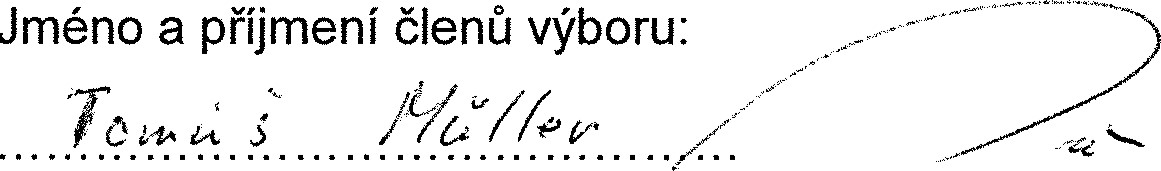 Jméno a příjmení členů výboru:
Tomáš Müller